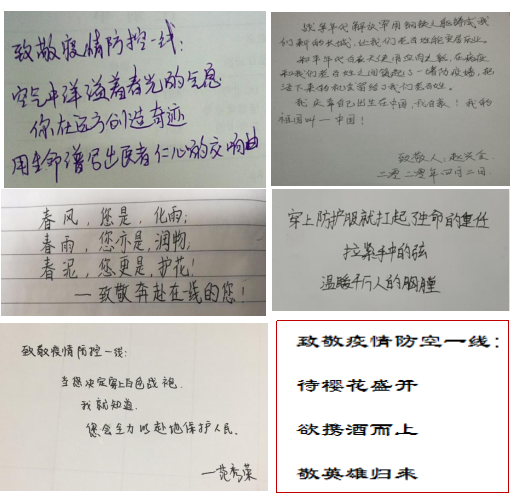 致敬疫情防控一线：
空气中洋溢着春光的气息
你在远方创造奇迹
用生命谱写出医者仁心的交响曲
战争年代解放军用钢铁之躯铸成我
们新的长城，让我们老百姓能安居乐业。
和平年代白衣天使用血肉之躯，在病疫
和我们老百姓之间筑起了一堵防疫墙，把
活下来的
我庆幸自己出生在中国，我自豪！我的
祖国叫一中国！
致敬人：赵兴全
二零二零年四月二日.
春风，您是，化雨；
春雨，您亦是，润物；
春泥，您更是，护花！
——致敬奔赴在一线的您！
穿上防护服就扛起了生命的重任
拉紧手中的弦
温暖千万人的胸膛
致敬疫情防控一线：
当您决定穿上白色战袍.
我就知道.
您会全力以赴地保护人民.
—范秀菜
致敬疫情防空一线：
待樱花盛开
欲携酒而上
敬英雄归来